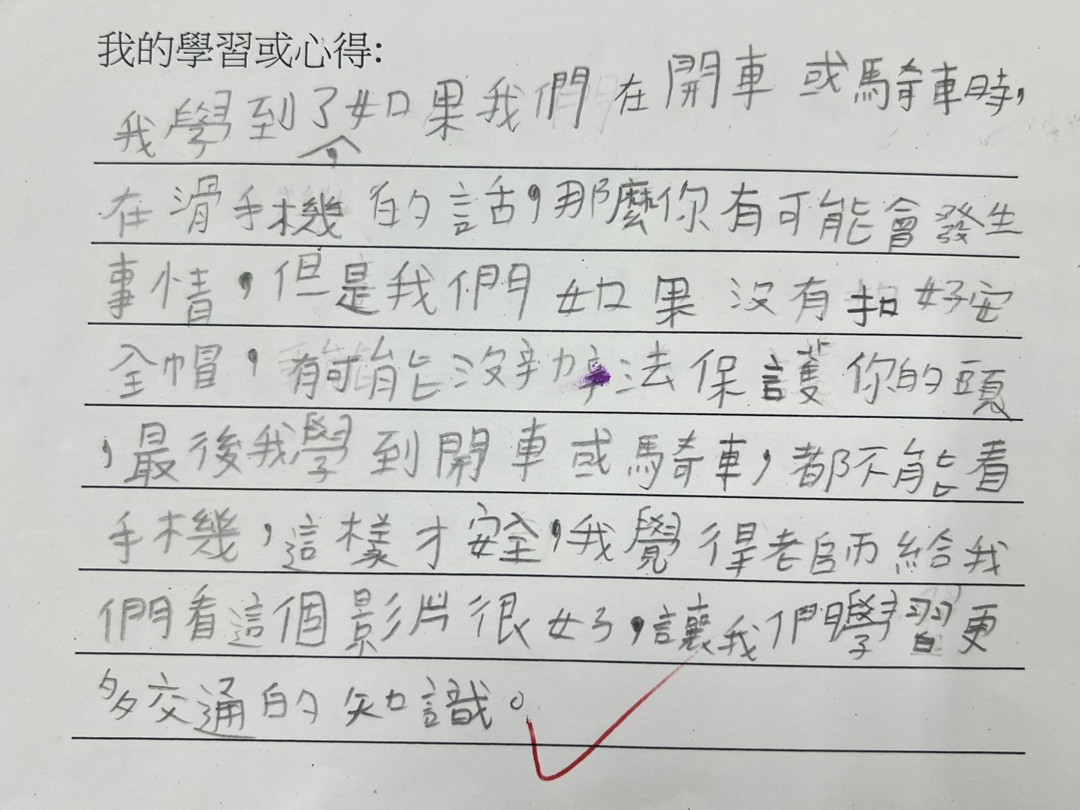 我的學習或心得:
我學到了，如果我們在開車或騎車時，
在滑手機的話，那麼你有可能會發生
事情，但是我們如果沒有扣好安
全帽，有可能沒辦法保護你的頭
，最後我學到開車或騎車，都不能看
手機，這樣才安全，我覺得老師給我
們看這個影片很好，讓我們學習更
多交通的知識。